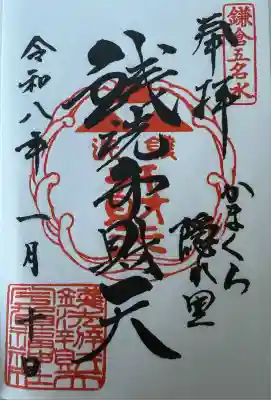 鎌倉五名水
奉拝
かまくら
隠れ里
銭洗弁財天
令和八年一月
十日